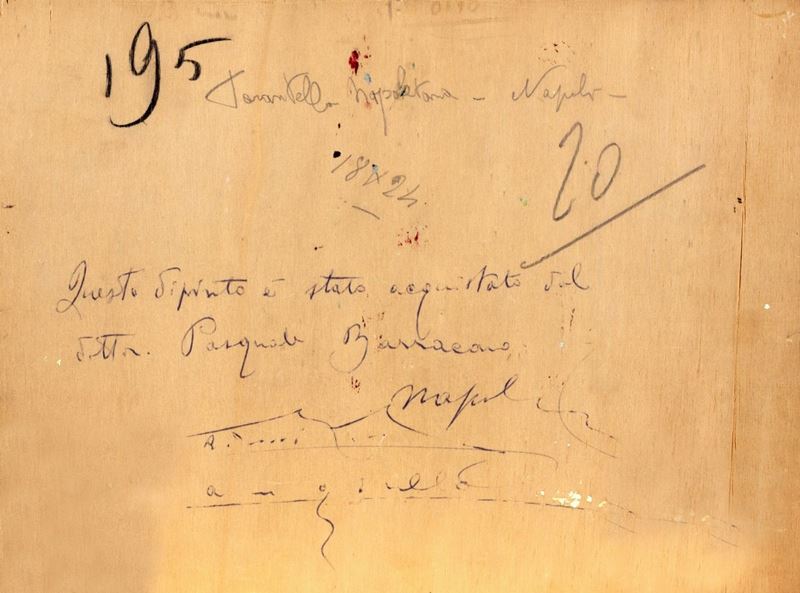 195
Tarantella Napoletana - Napoli -
18x24
20
Questo dipinto è stato acquistato dal
dottor. Pasquale Barracano
Napoli